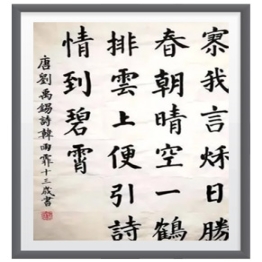 寥我言秋日勝
春朝晴空一鶴
排雲上便引詩
情到碧霄
唐劉禹錫詩韓雨霏十三歲書